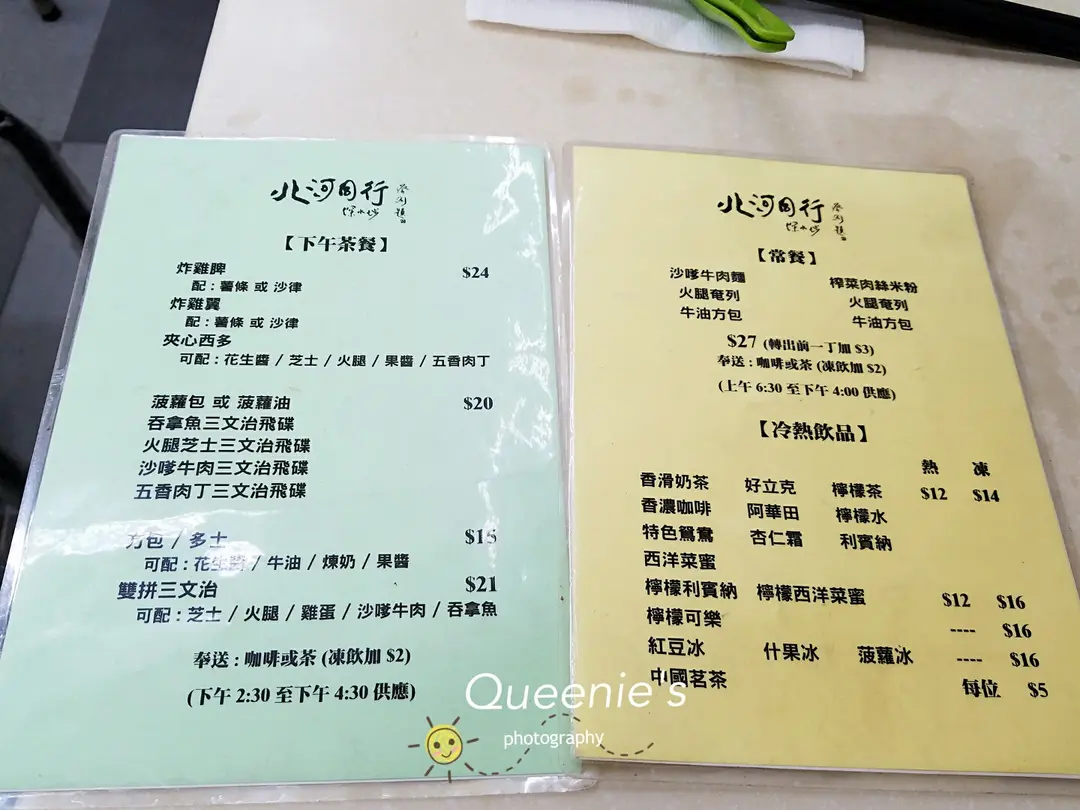 北河同行
深水埗
【下午茶餐】
炸雞脾 $24
配：薯條 或 沙律
炸雞翼
配：薯條 或 沙律
夾心西多
可配：花生醬 / 芝士 / 火腿 / 果醬 / 五香肉丁
菠蘿包 或 菠蘿油 $20
吞拿魚三文治飛碟
火腿芝士三文治飛碟
沙嗲牛肉三文治飛碟
五香肉丁三文治飛碟
方包 / 多士 $15
可配：花生醬 / 牛油 / 煉奶 / 果醬
雙拼三文治 $21
可配：芝士 / 火腿 / 雞蛋 / 沙嗲牛肉 / 吞拿魚
奉送：咖啡或茶 (凍飲加 $2)
(下午 2:30 至下午 4:30 供應)
北河同行
深水埗
【常餐】
沙嗲牛肉麵 榨菜肉絲米粉
火腿奄列 火腿奄列
牛油方包 牛油方包
$27 (轉出前一丁加 $3)
奉送：咖啡或茶 (凍飲加 $2)
(上午 6:30 至下午 4:00 供應)
【冷熱飲品】
熱 凍
香滑奶茶 好立克 檸檬茶 $12 $14
香濃咖啡 阿華田 檸檬水
特色鴛鴦 杏仁霜 利賓納
西洋菜蜜
檸檬利賓納 檸檬西洋菜蜜 $12 $16
檸檬可樂 ---- $16
紅豆冰 什果冰 菠蘿冰 ---- $16
中國茗茶 每位 $5
Queenie's
photography